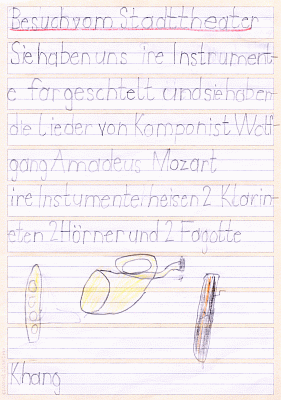 Besuch vom Stadttheater
Sie haben uns ire Instrument-
e forgeschtelt und sie haben
die Lieder von Komponist Wolf-
gang Amadeus Mozart
ire Instumente heisen 2 Klarin-
eten 2 Hörner und 2 Fagotte
Khang